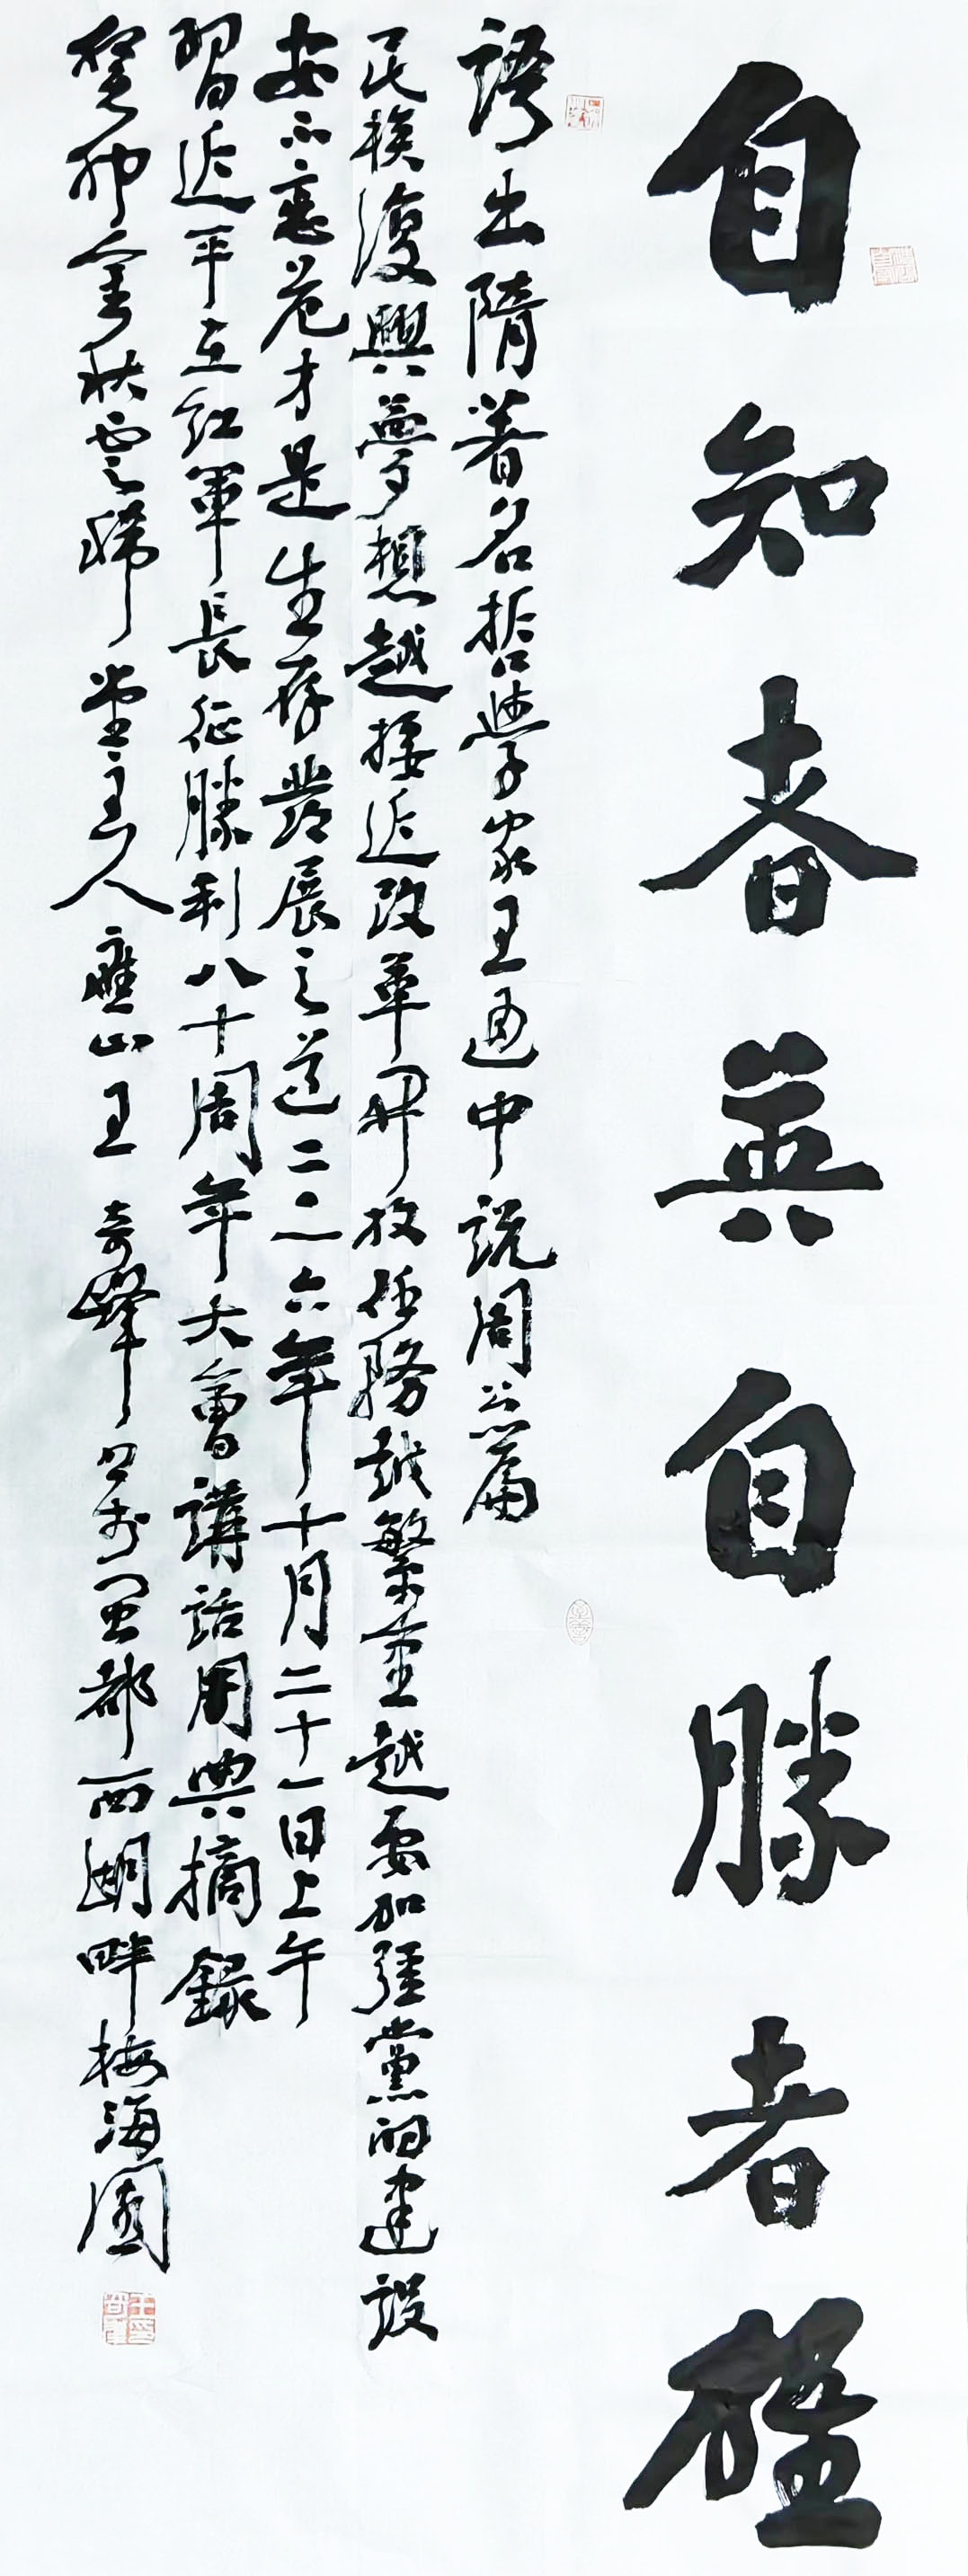 自知者英自勝者雄
語出隋著名哲學家王通中說周公篇
民族復興夢想越接近改革開放任務越繁重越要加強黨的建設
安不忘危才是生存發展之道二〇一六年十月二十一日上午
習近平在紅軍長征勝利八十周年大會講話用典摘錄
癸卯金秋雲歸堂主人應山王奇峰書於蜀都西湖畔梅海園